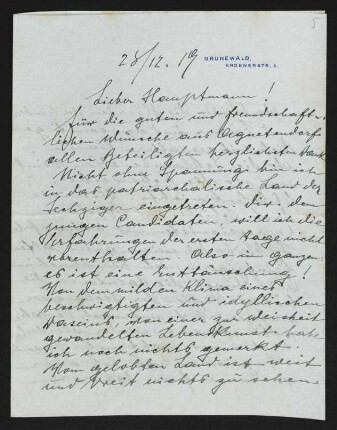 5
28/12. 19
GRUNEWALD,
ERDENERSTR.
Lieber Hauptmann!
Für die guten und freundschaft-
lichen Wünsche aus Agnetendorf
allen Beteiligten herzlichsten Dank
Nicht ohne Spannung bin ich
in das patriarchalische Land der
Sechziger eingetreten. Dir, dem
jungen Candidaten, will ich die
Erfahrungen der ersten Tage nicht
vorenthalten. Also im ganzen
es ist eine Enttäuschung!
Von dem milden Klima eines
beschwigtigten und idyllischen
Daseins, von einer zur Weisheit
gewandelten Lebenskunst habe
ich noch nichts gemerkt.
Vom gelobten Land ist weit
und breit nichts zu sehen